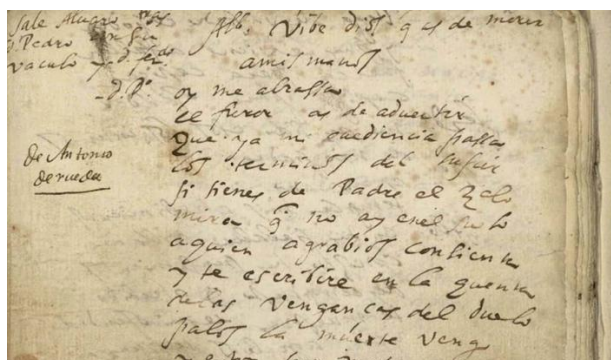 sale Mauro
D. Pedro
vaculo y d. fer.do
Alb. Vibe dios q as de morir
a mis manos
D. P.o oy me abrassa
el furor as de advertir
Que ya mi ovediencia passa
los terminos del sufrir
de Antonio
de rueda
si tienes de Padre el Zelo
mira q no ay en el suelo
a quien agrabios consienta
y te escribire en la quenta
de las venganças del duelo
palos la muerte vengo